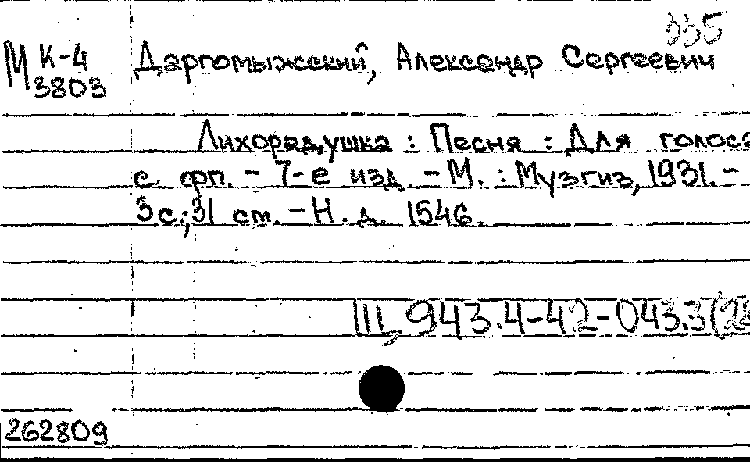 335
М К-4 Даргомыжский, Александр Сергеевич
3803
Лихорадушка : Песня : Для голоса
с фп. - 7-е изд. - М. : Музгиз, 1931. -
3 с.; 31 см. - Н. д. 1546.
Щ 943.4-42-043.3(2
262809